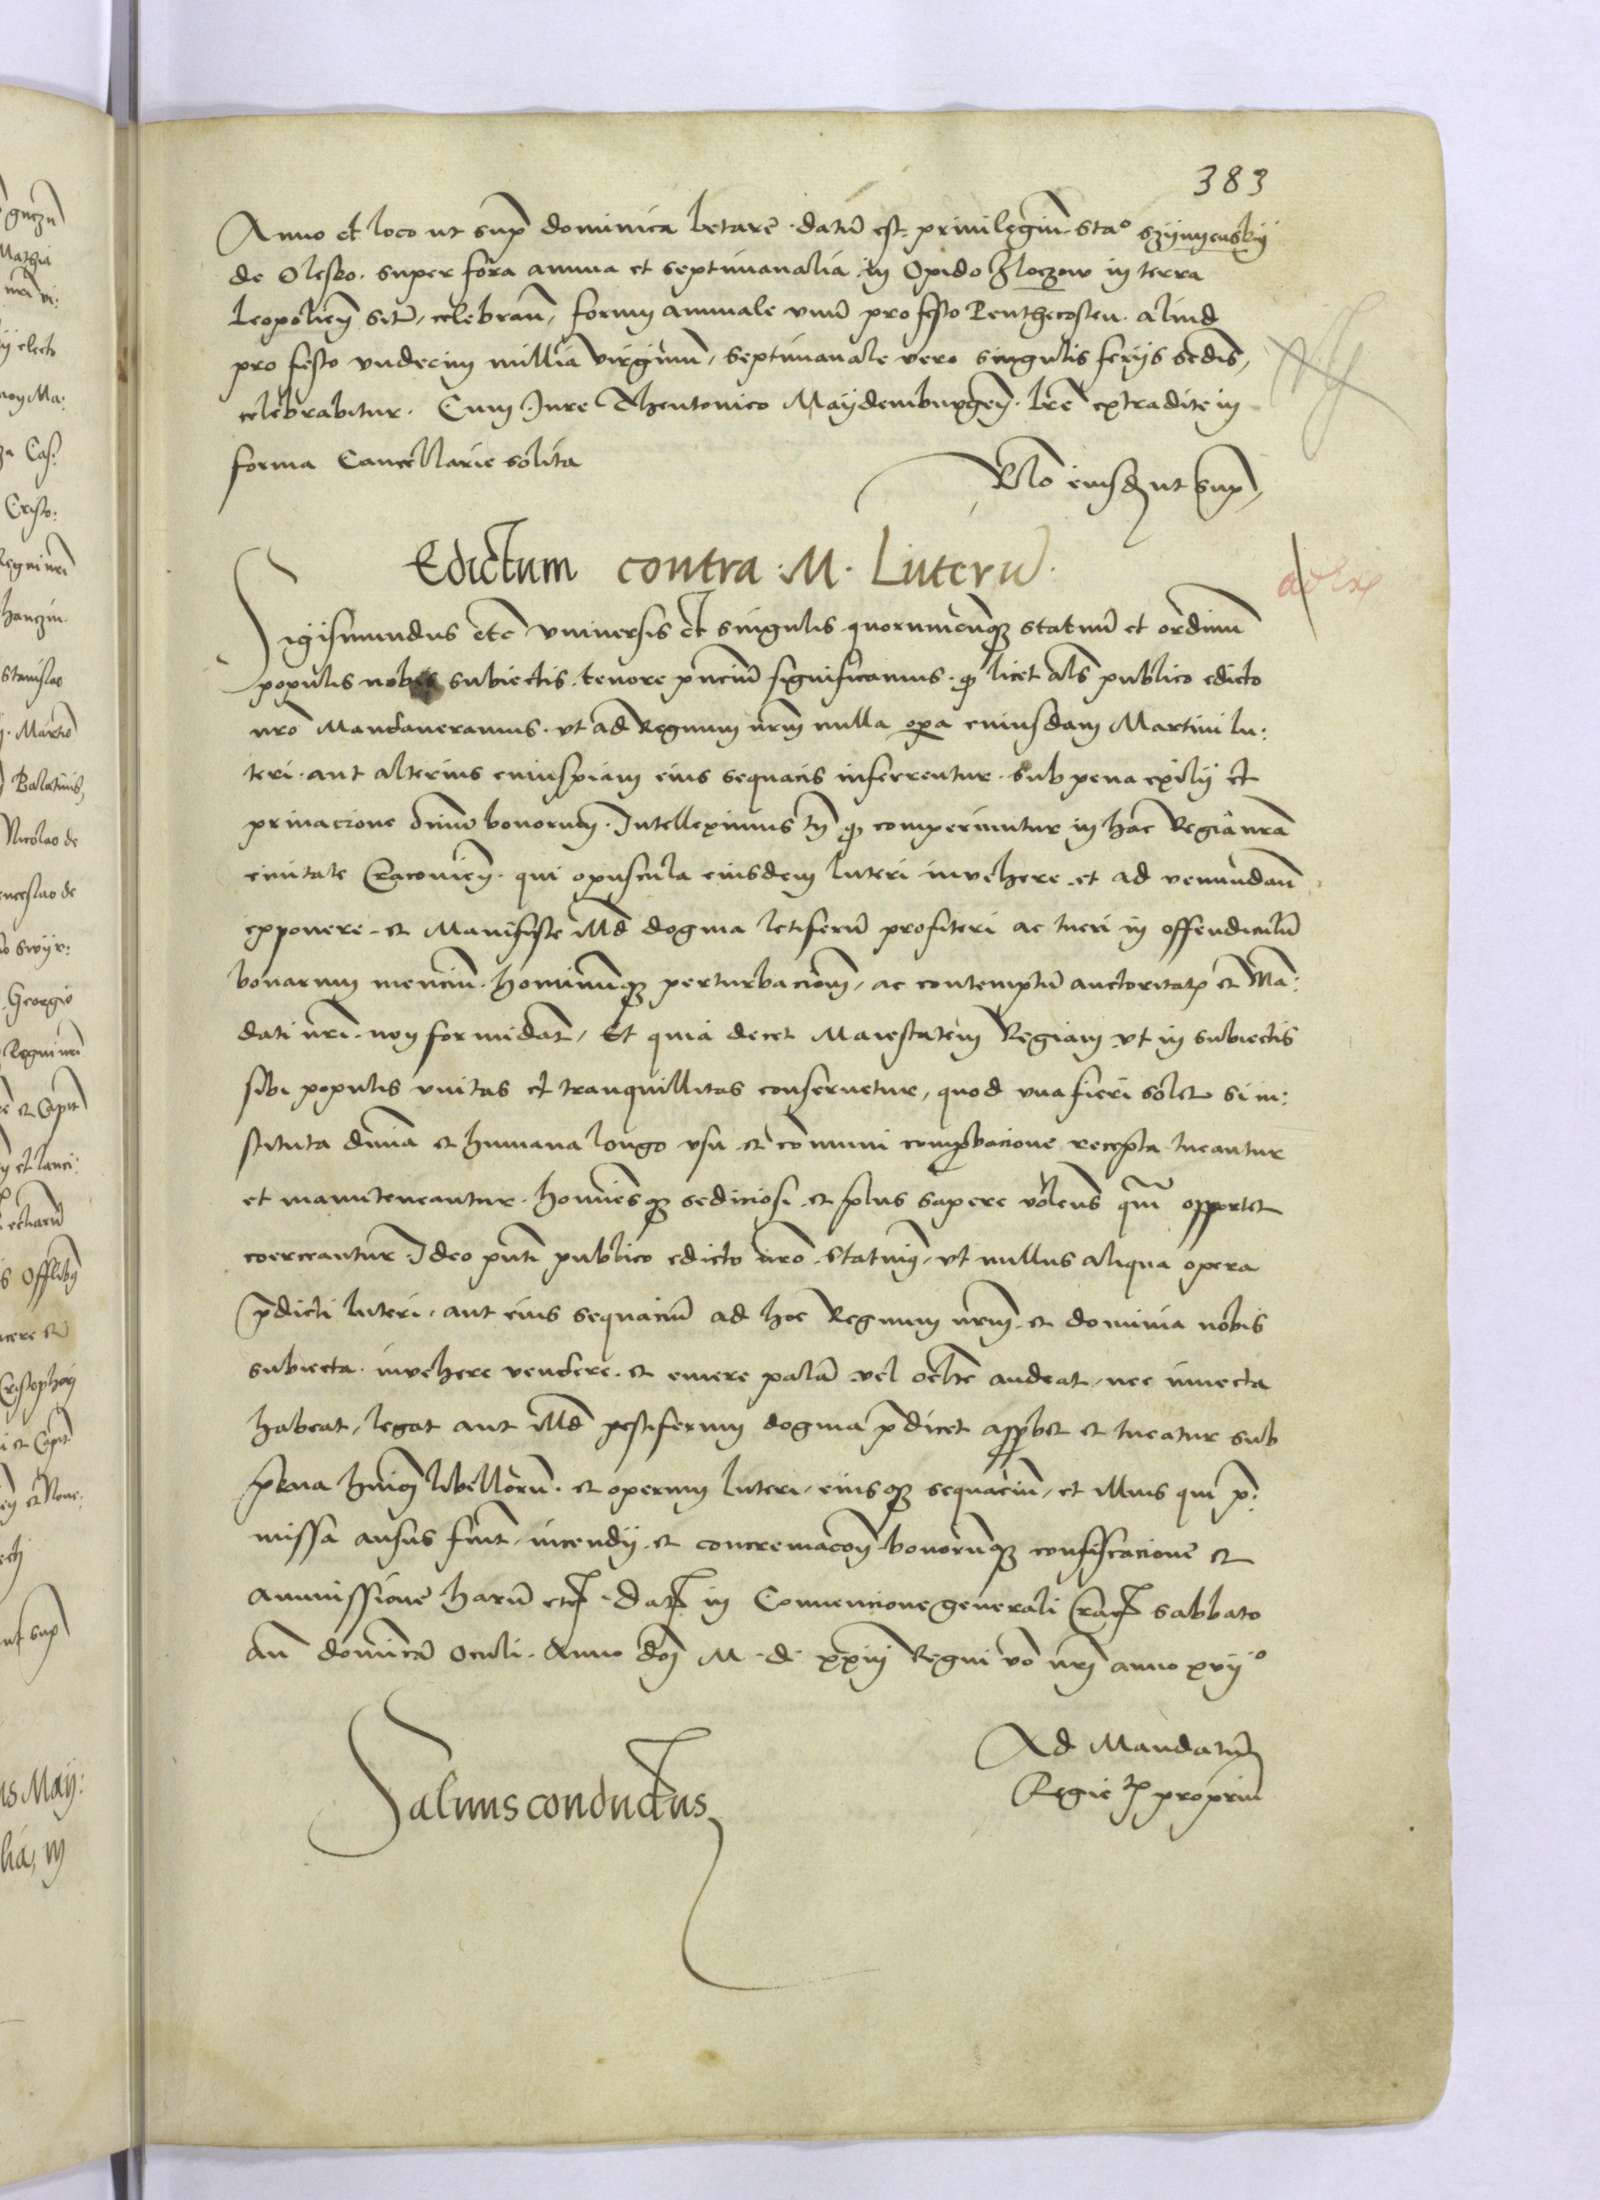 383
Anno et loco ut sup dominica letare · datū est privilegiū Sta° Szyenyenskÿ
de Olesko · super fora annua et septimanalia in Opido Zloczow in terra
Leopolień sitū, celebrań, forum annuale unū pro festo Penthecosten aliud
pro festo undecim millia virginum, septimanale vero singulis ferijs sedis,
celebrabitur. Cum Jure Theutonico Maydemburgeñ. lrē extradite in
forma Cancellarie solita
Rlo eiusd ut sup
Edictum contra · M · Luterū ·
Sigismundus etc̄ universis et singulis quorumcunq statuū et ordinum
populis nobis subiectis. tenore pn̄ciū significamus · q licet als publico edicto
nrō Mandaveramus · ut ad Regnum nrm̄ nulla opa cuiusdam Martini lu:
teri · aut alterius cuiuspiam eius sequacis inferrentur · sub pena exilij et
privacione ōniū bonorum · Intelleximus tn̄ q comperiuntur in hac Regia nrā
civitate Cracovień · qui opuscula eiusdem luteri invehere et ad venundań
exponere et Manifeste illd̄ dogma letiferū profiteri ac tueri in offendiculū
bonarum menciū · hominūq perturbacionem, ac contemptū auctoritatis et Mā:
dati nri · non formidāt, Et quia decet Maiestatem Regiam ut in subiectis
sibi populis unitas et tranquillitas conservetur, quod una fieri solet si in:
stituta divina et humana longo usu et cōmuni comprobacione recepta tueantur
et manuteneantur · hominesq sediciosi et plus sapere volens quā opportet
coerceantur · Ideo pn̄ti publico edicto nrō statuim̄, ut nullus aliqua opera
p̄dicti luteri, aut eius sequaciū ad hoc Regnum nrm̄ et dominia nobis
subiecta · invehere vendere · et emere palā vel oclte audeat, nec invecta
habeat, legat aut illd̄ pestiferum dogma p̄dicet approbet et tueatur sub
pena hm̄oi libellorū · et operum luteri, eiusq sequaciū, et illius qui p̄:
missa ausus fuit, incendij et concremacōn bonorūq confiscacione et
ammissione harū etc · Dat in Convencione generali Crac Sabbato
añ dominicā Oculi · Anno dn̄i M · d · xxiij Regni vō nri anno xvij°
Ad Mandatū
Regie M proprium
Salvusconductus